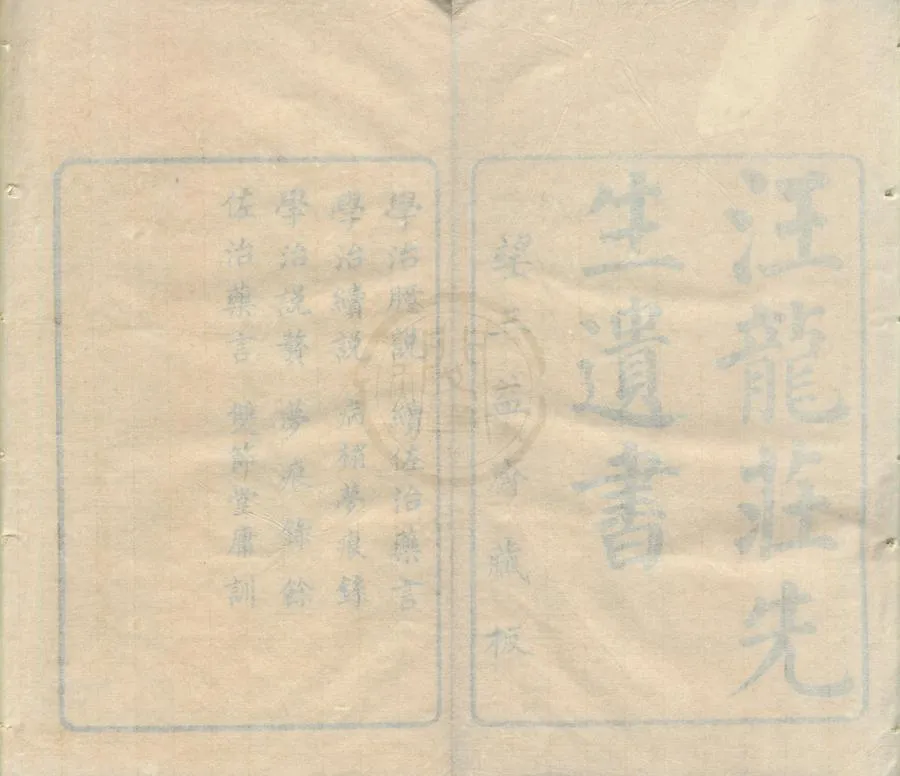 汪龍莊先
生遺書
望三益齋藏板
學治臆説 續佐治藥言
學治續説 病榻夢痕錄
學治説贅 夢痕錄餘
佐治藥言 雙節堂庸訓